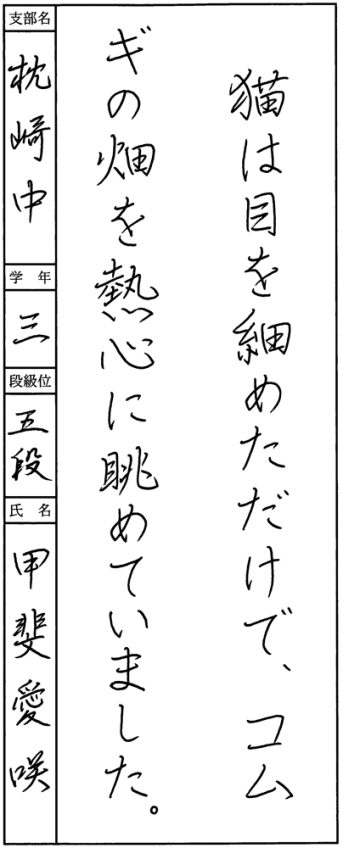 猫は目を細めただけで、コム
ギの畑を熱心に眺めていました。
支部名
枕崎中
学年
三
段級位
五段
氏名
甲斐愛咲